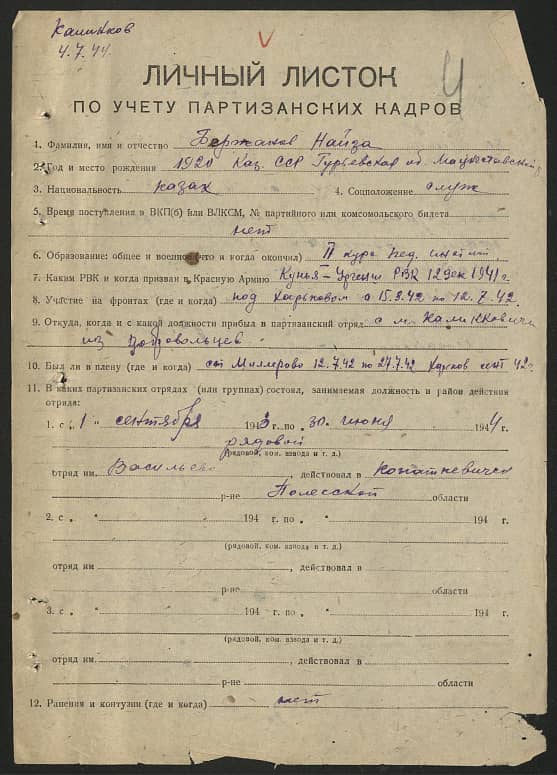 Калинков
4.7.44.
V
4
ЛИЧНЫЙ ЛИСТОК
ПО УЧЕТУ ПАРТИЗАНСКИХ КАДРОВ
1. Фамилия, имя и отчество Бержанов Найза
2. Год и место рождения 1920 Каз. ССР Гурьевская об.
3. Национальность казах 4. Соцположение служ
5. Время поступления в ВКП(б) или ВЛКСМ, № партийного или комсомольского билета
нет
6. Образование: общее и военное (что и когда окончил) II курс пед. инстит.
7. Каким РВК и когда призван в Красную Армию Кунья-Ургенч РВК 12 дек 1941 г.
8. Участие на фронтах (где и когда) под Харьковом с 15.3.42 по 12.7.42.
9. Откуда, когда и с какой должности прибыл в партизанский отряд с м. Калинковичи
из добровольцев
10. Был ли в плену (где и когда) ст Миллерово 12.7.42 по 27.7.42 Харьков сент 42
11. В каких партизанских отрядах (или группах) состоял, занимаемая должность и район действия
отряда:
1. с „1" сентября 1943 г. по 30 июня 1944 г.
рядовой
(рядовой, ком. взвода и т. д.)
отряд им. Васильева, действовал в
р-не Полесской области
2. с " 194 г. по " 194 г.
(рядовой, ком. взвода и т. д.)
отряд им , действовал в
р-не области
3. с " 194 г. по " 194 г.
(рядовой, ком. взвода и т. д.)
отряд им. , действовал в
р-не области
12. Ранения и контузии (где и когда) нет